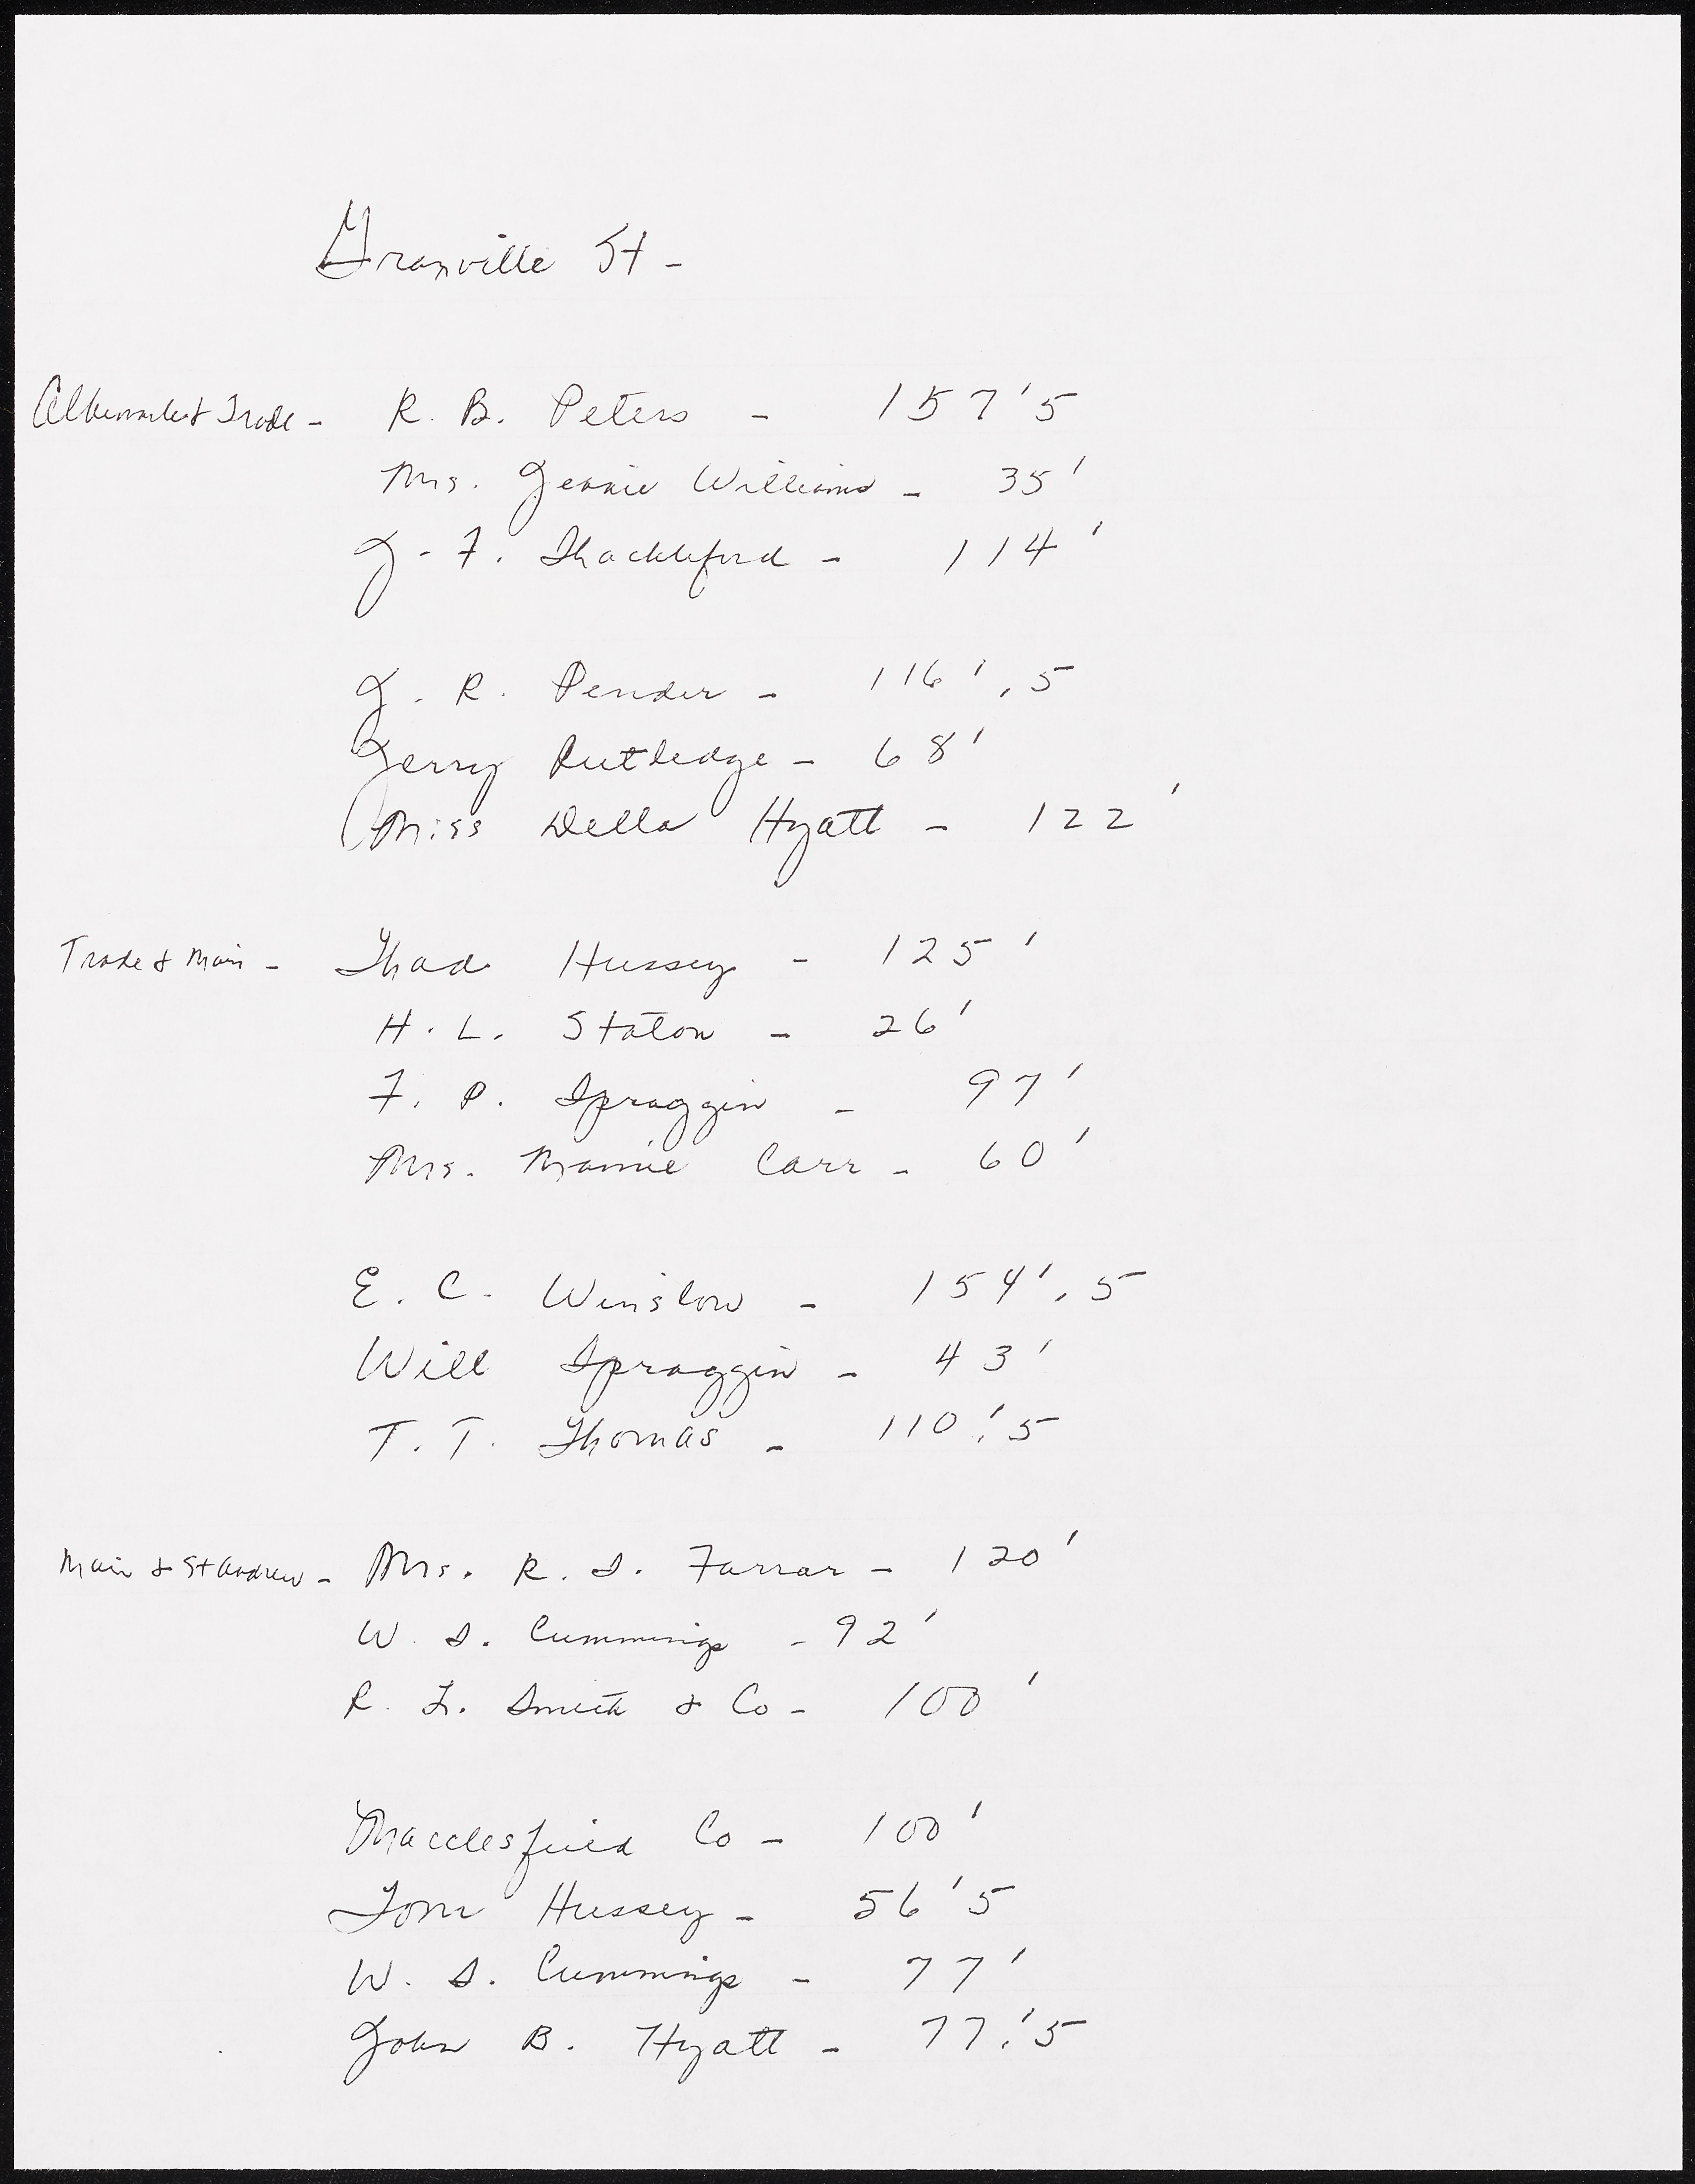 Granville St -
Albemarle & Trade - R. B. Peters - 157'5
Mrs. Jennie Williams - 35'
J. F. Shackleford - 114'
J. R. Pender - 116'.5
Jerry Rutledge - 68'
Miss Della Hyatt - 122'
Trade & Main - Thad Hussey - 125'
H. L. Staton - 26'
F. P. Spraggin - 97'
Mrs. Mamie Carr - 60'
E. C. Winslow - 154'.5
Will Spraggin - 43'
T. T. Thomas - 110.'5
Main & St Andrew - Mrs. R. S. Farrar - 120'
W. S. Cummings - 92'
R. L. Smith & Co - 100'
Macclesfield Co - 100'
Tom Hussey - 56'5
W. S. Cummings - 77'
John B. Hyatt - 77.'5